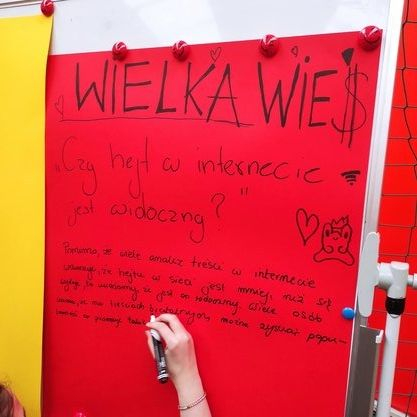 WIELKA WIEŚ
„Czy hejt w internecie
jest widoczny?"
Pomimo, że wiele analiz treści w internecie
wskazuje, że hejtu w sieci jest mniej niż się
wydaje, to uważamy, że jest on widoczny. Wiele osób
uważa, że na treściach brutalnych, można zyskać popu-